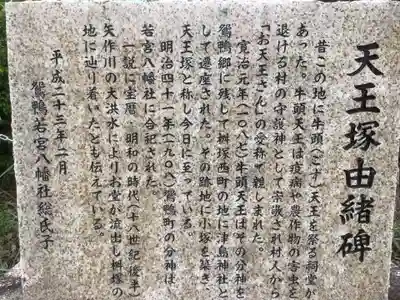 天王塚由緒碑
昔この地に牛頭(ごず)天王を祭る祠堂が
あった。牛頭天王は疫病や農作物の害虫を
退ける村の守護神として宗敬され村人から
「お天王さん」の愛称で親しまれた。
寛治元年(一〇八七)牛頭天王はその分神を
鴛鴨郷に残して桝塚西町の地に津島神社と
して遷座された。その跡地に小塚を築き、
天王塚と称し今日に至っている。
明治四十一年(一九〇八)鴛鴨町の分神は、
若宮八幡社に合祀された。
一説に宝暦、明和の時代(十八世紀後半)
矢作川の大洪水によりお堂が流出し桝塚の
地に辿り着いたとも伝えている。
平成二十三年二月
鴛鴨若宮八幡社総氏子